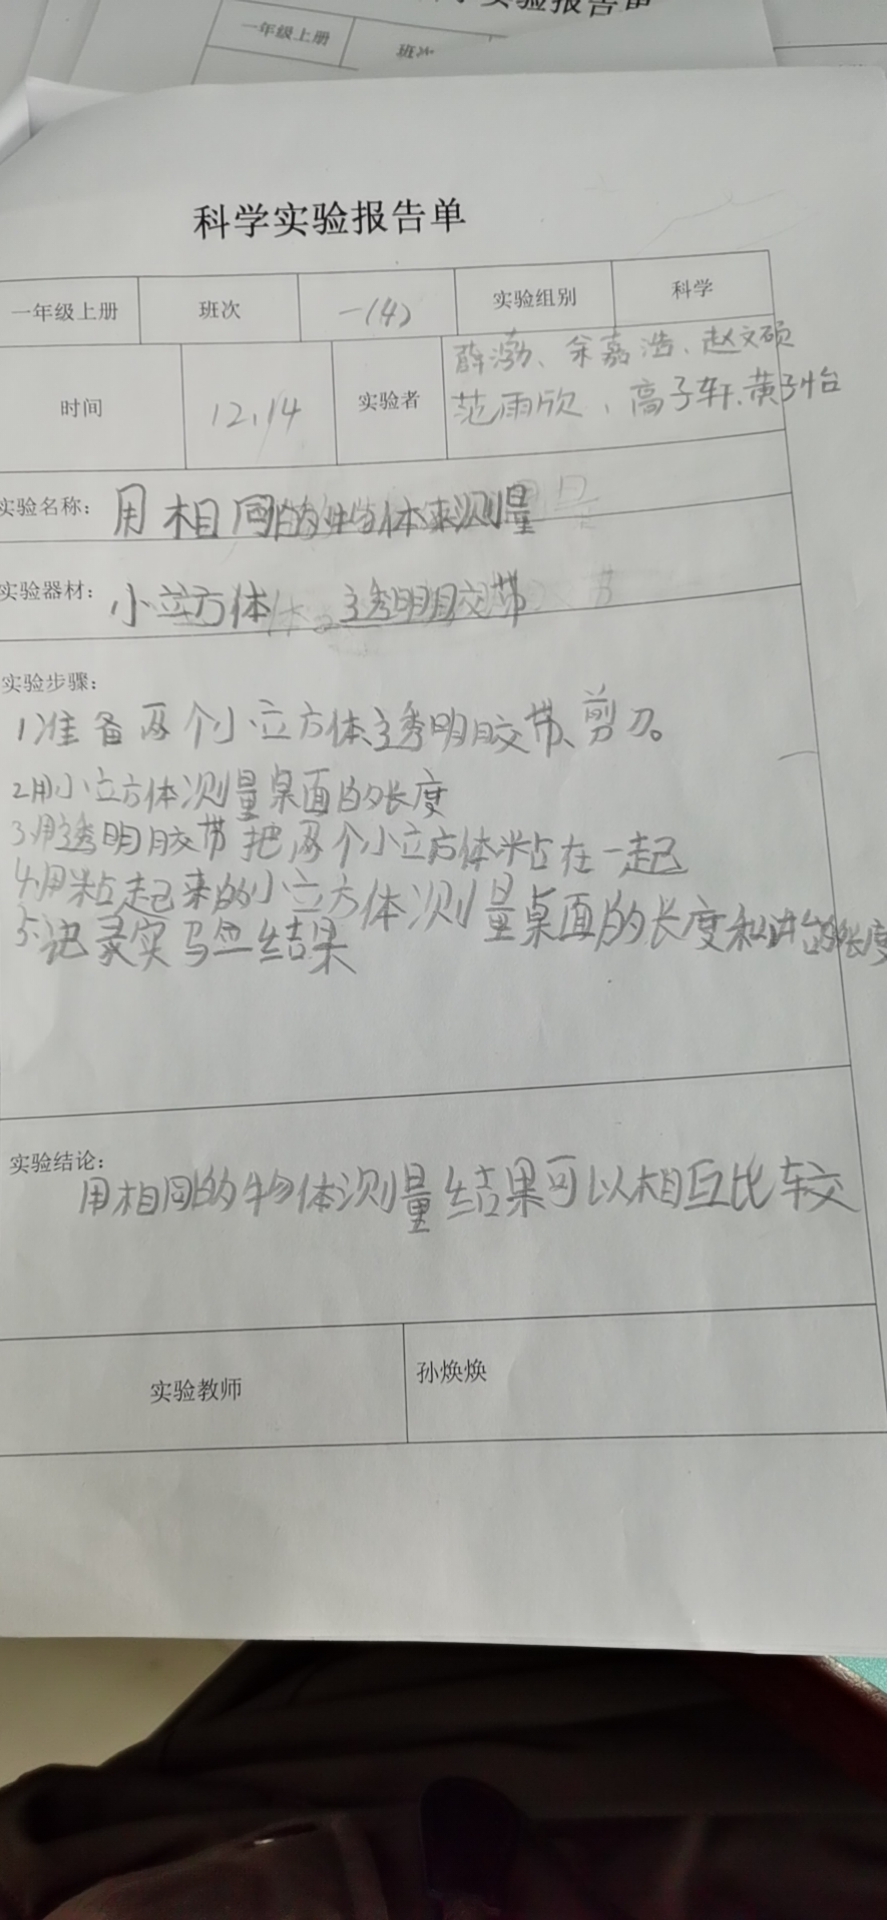 实验报告单
一年级上册 班次
科学实验报告单
一年级上册 班次 一(4) 实验组别 科学
薛渤、余嘉浩、赵文硕
时间 12.14 实验者
范雨欣、高子轩、黄子怡
实验名称: 用相同的物体来测量
实验器材: 小立方体 透明胶带
实验步骤:
1准备两个小立方体透明胶带、剪刀。
2用小立方体测量桌面的长度
3.用透明胶带把两个小立方体粘在一起
4.用粘起来的小立方体测量桌面的长度和讲台的长度
5.记录实验结果
实验结论:
用相同的物体测量结果可以相互比较
实验教师 孙焕焕